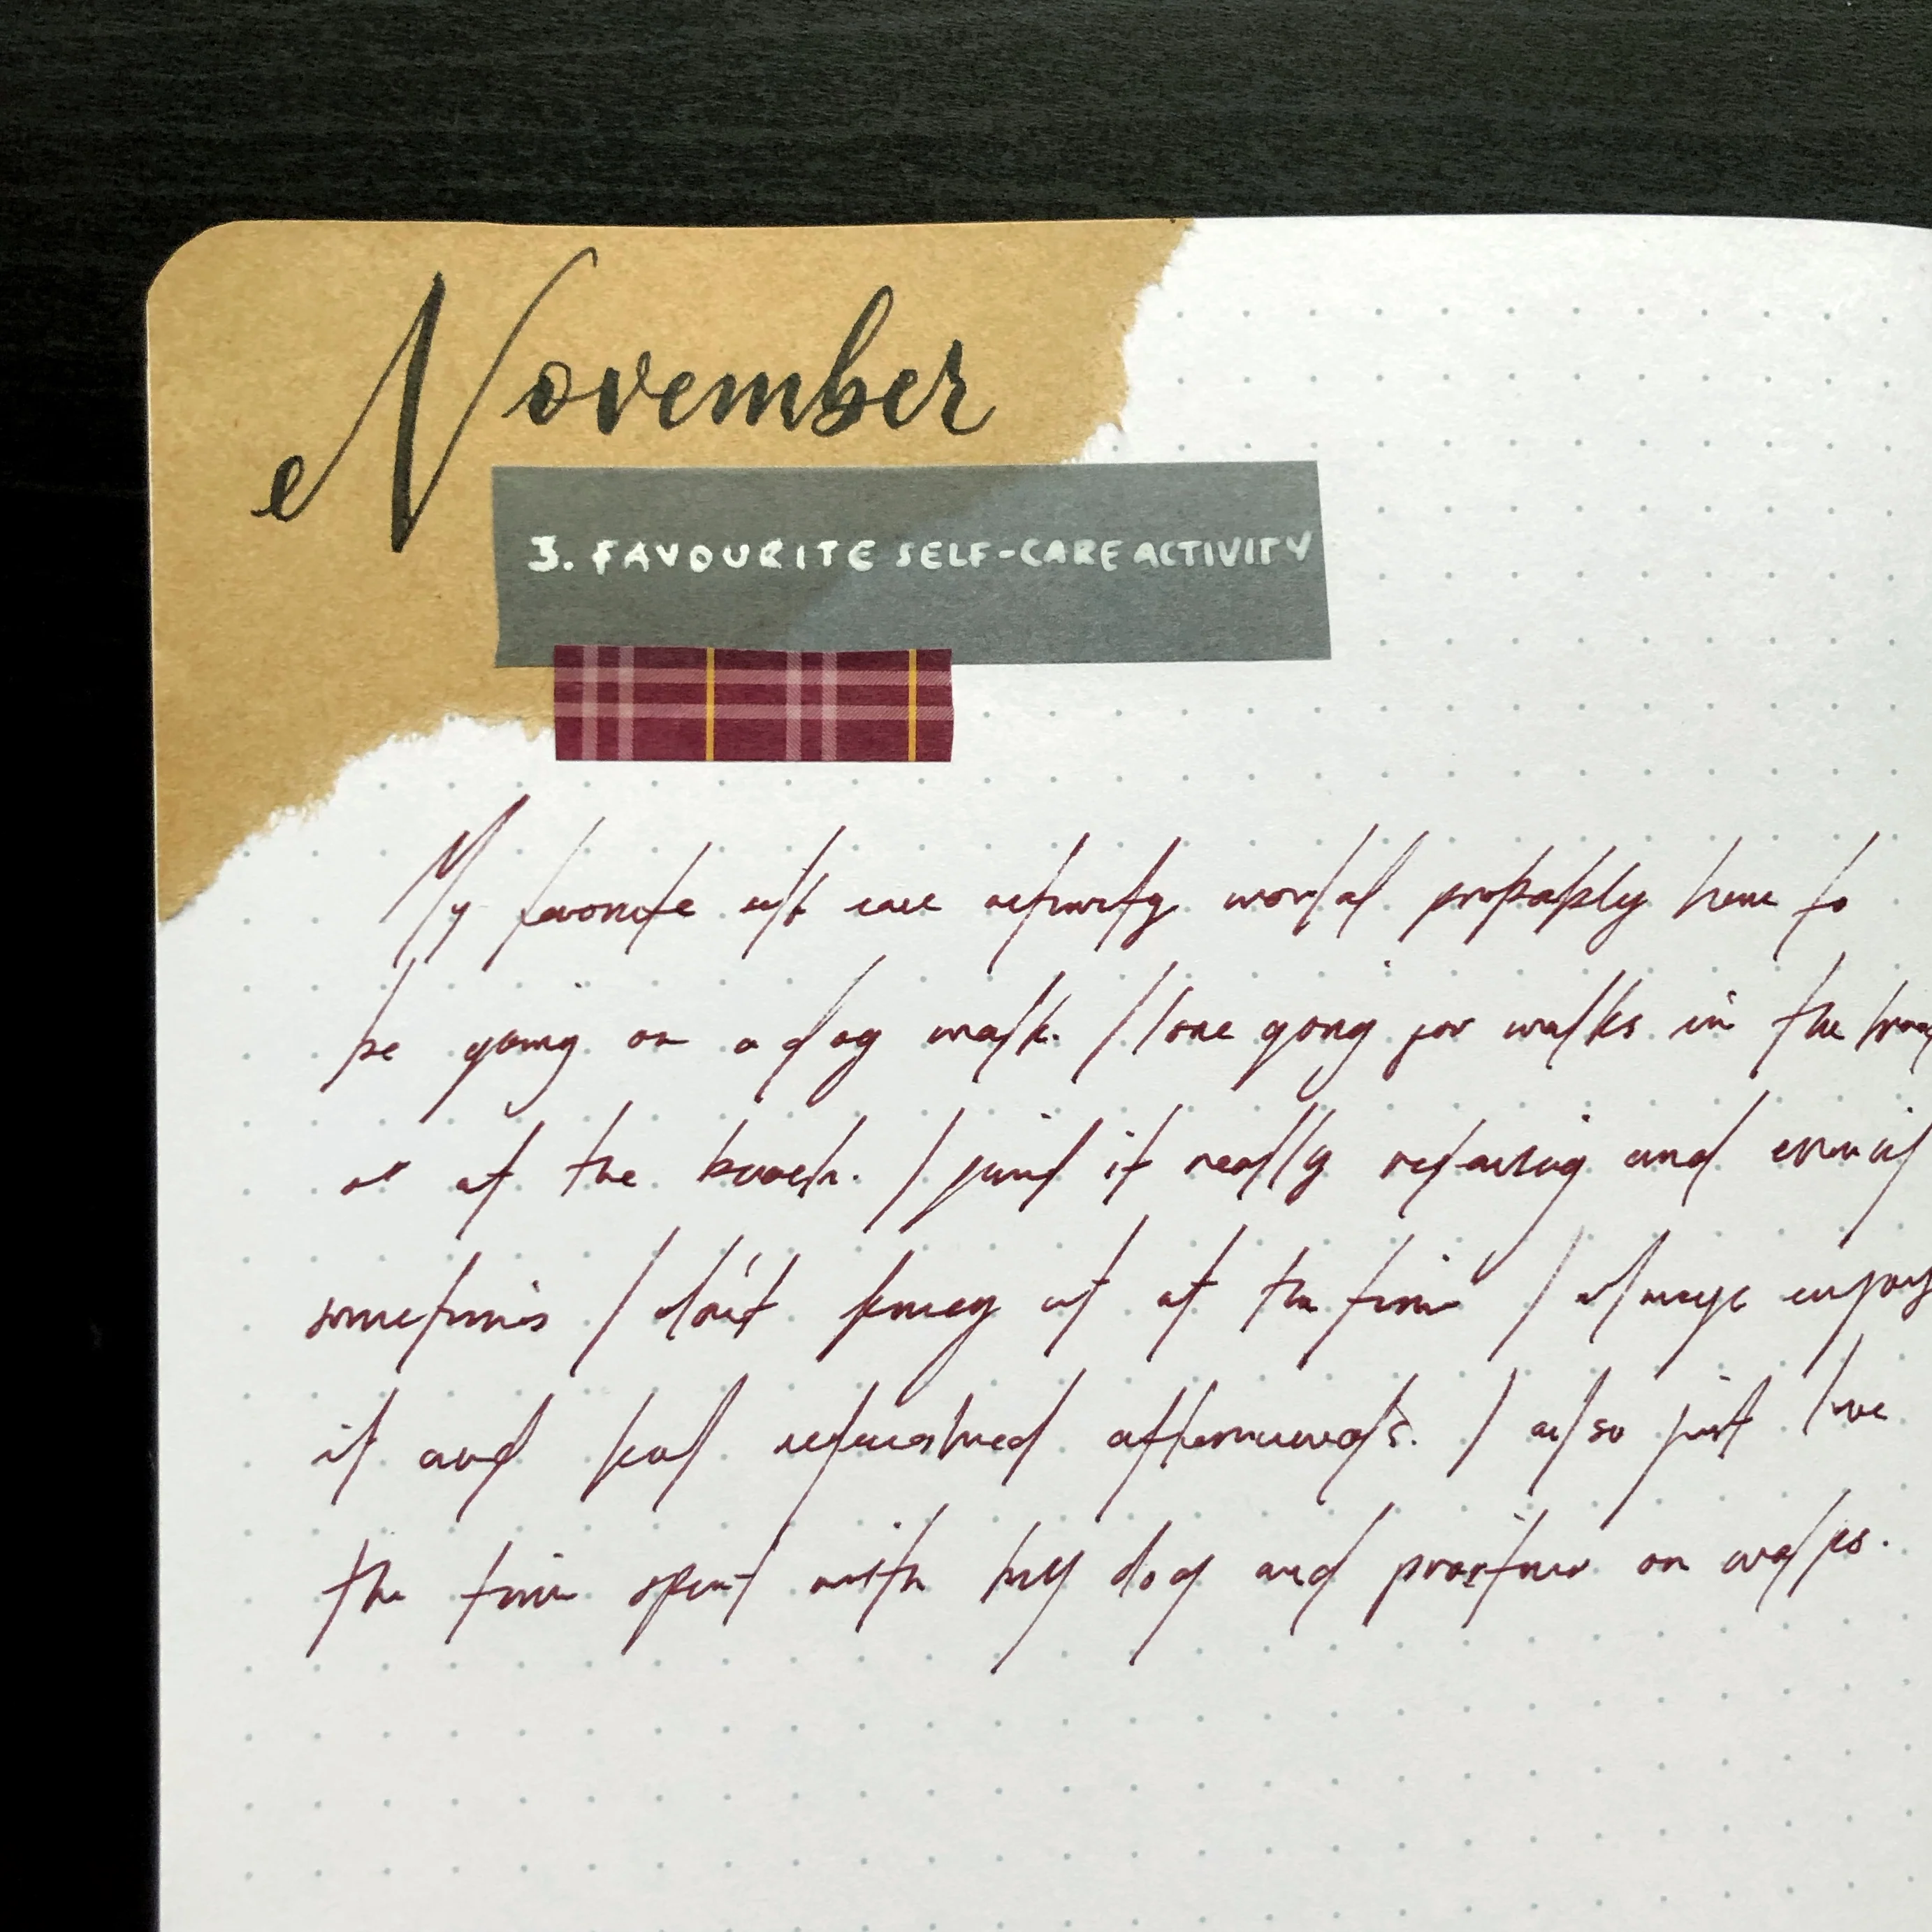 November
3. FAVOURITE SELF-CARE ACTIVITY
My favorite self care activity would probably have to
be going on a dog walk. I love going for walks in the
or at the beach. I find it really relaxing and even if
sometimes I don't fancy it at the time I always enjoy
it and feel refreshed afterwards. I also just love
the time spent with my dog and partner on walks.